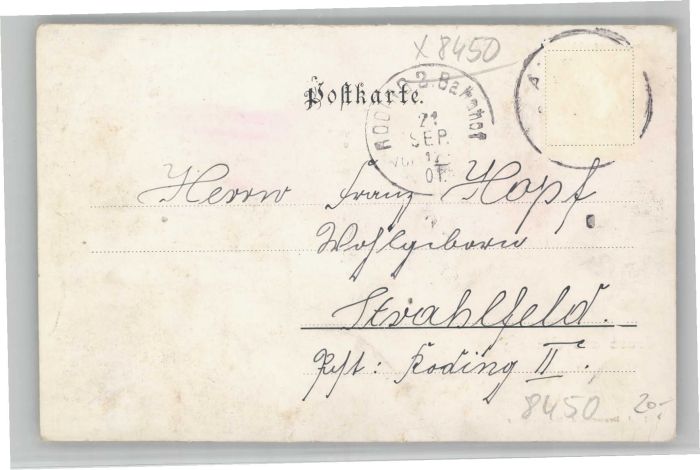 X 8450
Postkarte.
ROD B.B. Bahnhof
21
SEP.
VOR. 12
01
A
Herrn Franz Hopf
Wohlgeborn
Strahlfeld.
Post: Roding II.
8450 20.-